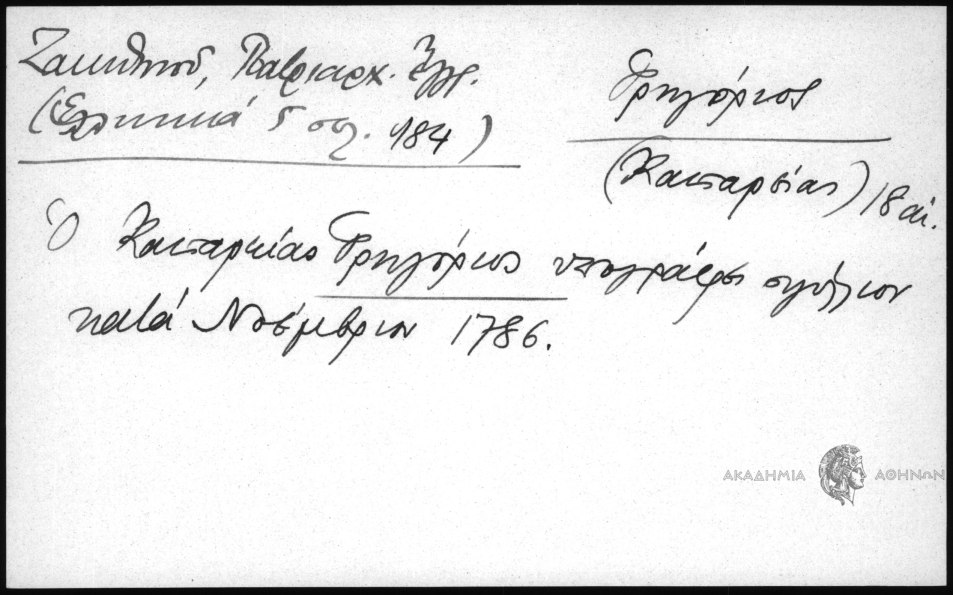 Ζακυθηνού, Πατριαρχ. Ἔγγρ.
(Ἑλληνικά 5 σελ. 184)
Γρηγόριος
(Καισαρείας) 18 αἰ.
Ὁ Καισαρείας Γρηγόριος υπογράφει σιγίλλιον
κατά Νοέμβριον 1786.
ΑΚΑΔΗΜΙΑ ΑΘΗΝΩΝ